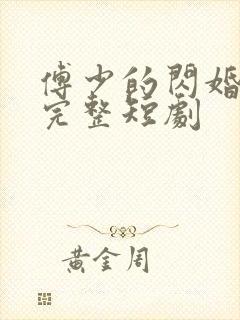 傅少的閃婚
完整短劇
黃金周